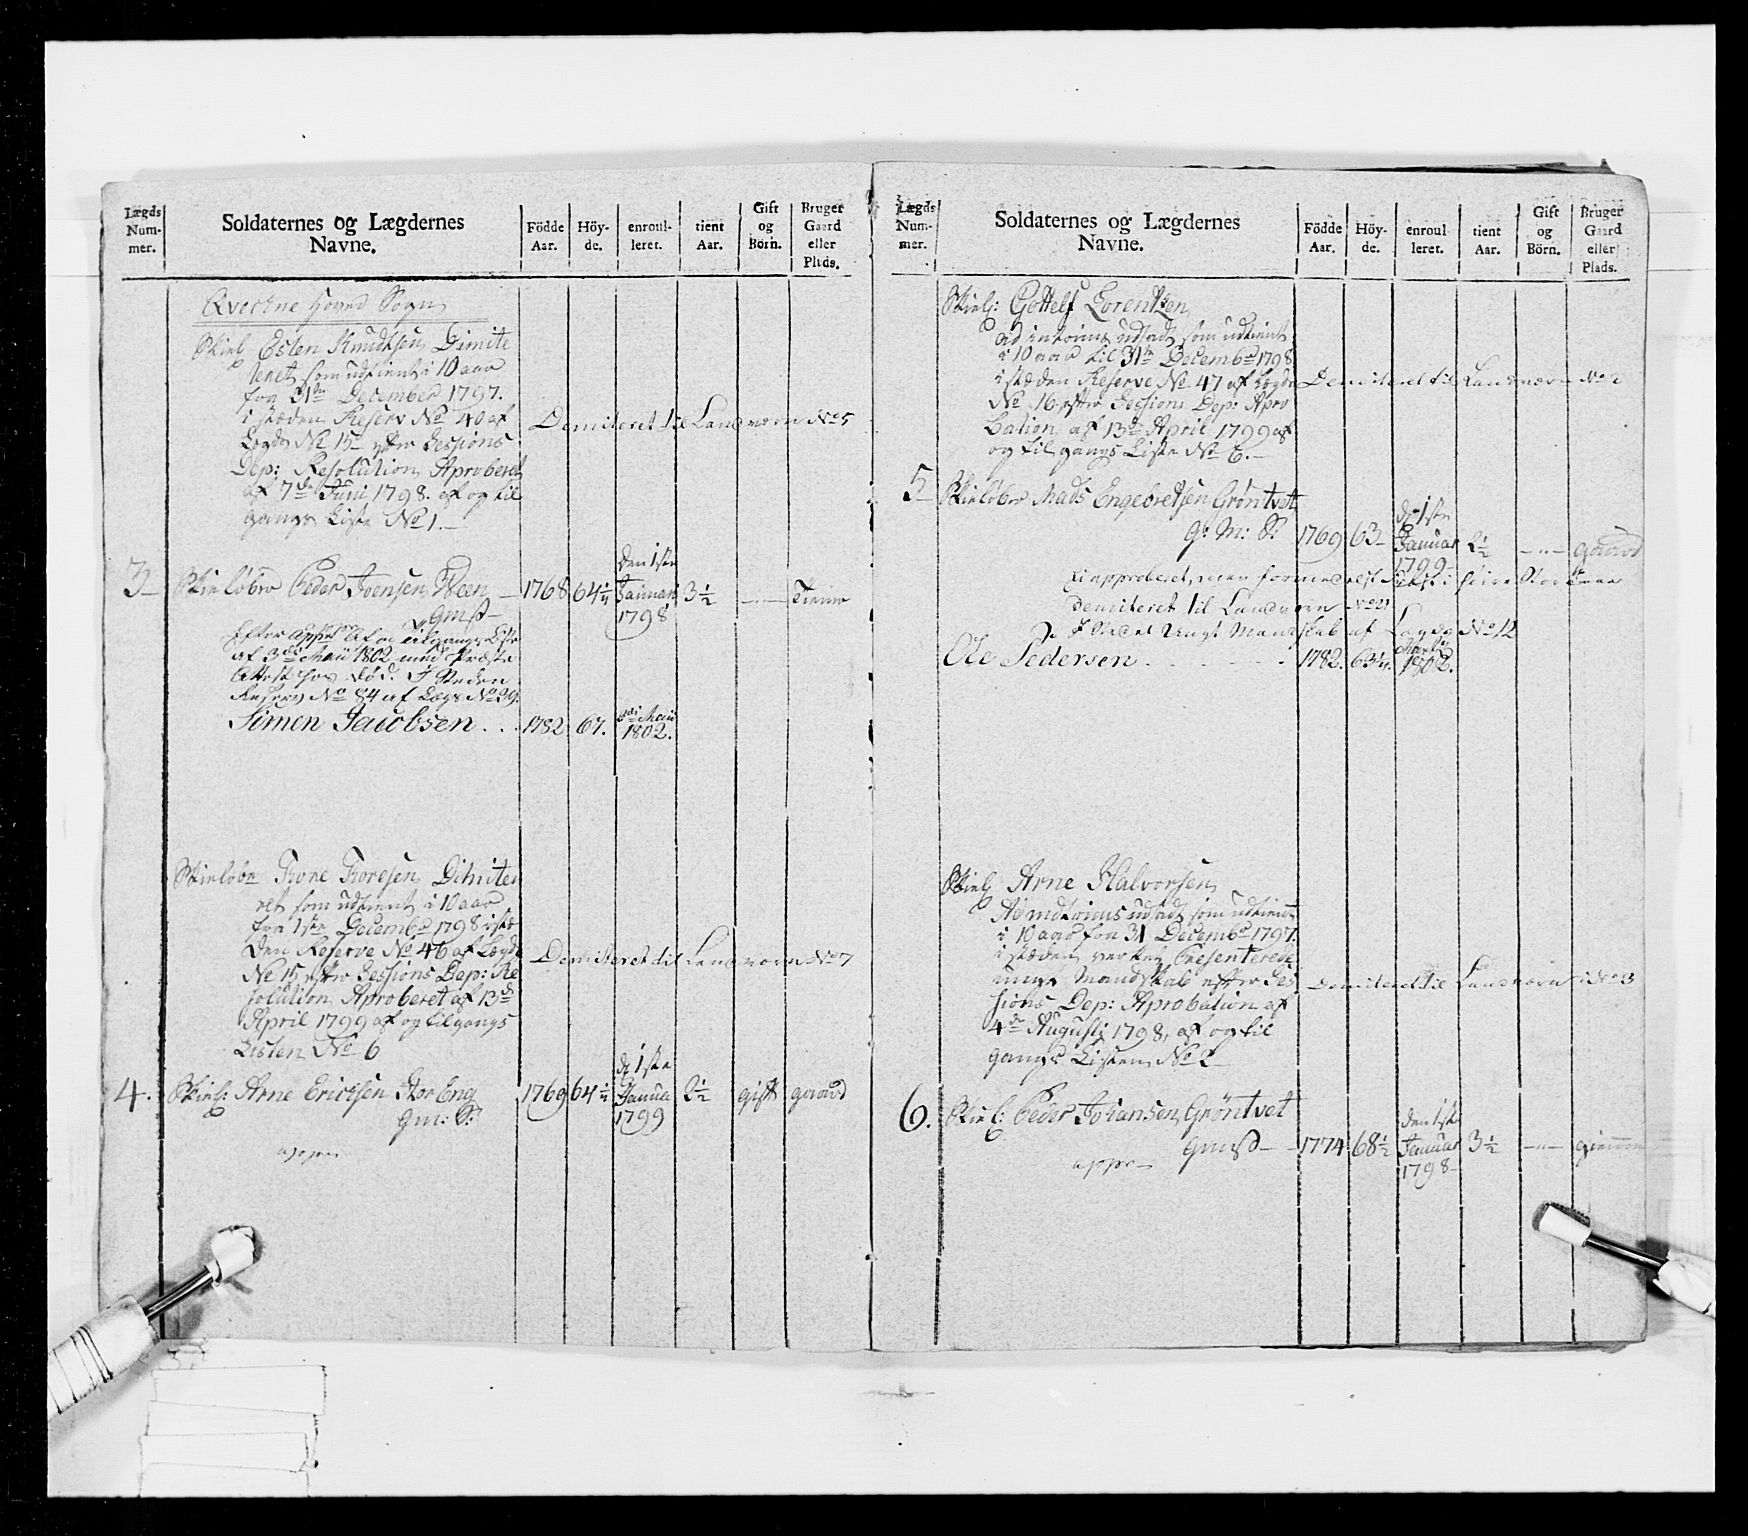 Lægds Num- mer.
Soldaternes og Lægdernes Navne.
Födde Aar.
Höy- de.
enroul- leret.
tient Aar.
Gift og Börn.
Bruger Gaard eller Plads.
Hoved Sogn
Esten Knudtsen Dimite
reret som udtient i 10 aar
fra 31te December 1797.
i stæden Reserv No 40 af
Legds No 15 efter Sessions
Dep: Resolution Aproberet
af 7de Juni 1798. af og til
gangs Liste No 1.
Demiteret til Landværn No 5
3 Skieløber Peder Joensen Ween 1768 64 den 1ste Januari 1798 3½ Tiener
Efter af og tilgangs Liste
af 3die Maii 1802 med Præste
Attest for død. I Steden
Reserv No 84 af Lægd No 29.
Simen Jacobsen . . 1782 67. 3die Maii 1802.
Skieløber Tore Toresen Dimite
ret som udtient i 10 aar
fra 1ste Decembr 1798 i stæ
den Reserve No 46 af Lægd
No 15 efter Sessions Dep: Re
solution Aproberet af 13de
April 1799 af og tilgangs
Listen No 6
Demiteret til Landværn No 7
4. Skiel: Arne Ericksen Stor Eng 1769 64 d 1ste Janua 1799 2½ gift gaard
Gm: S:
Lægds Num- mer.
Soldaternes og Lægdernes Navne.
Födde Aar.
Höy- de.
enroul- leret.
tient Aar.
Gift og Börn.
Bruger Gaard eller Plads.
Skiel: Gottelf Lorentzen
udsadt som udtient
i 10 aar til 31te Decembr 1798
i stæden Reserve No 47 af Lægds
No 16 efter Sessions Dep: Apro
bation af 13de April 1799 af
og til gangs Liste No 6.
Demiteret til Landværn No 2
5 Skieløber Mads Engebretsen Grøntvet
G: M: S: 1769 63 d 1ste Januar 1799 2½ gaard
demiteret til Landværn
I Stedet Ungt Mandskab af Lægds No 12
Ole Pedersen 1782. 63 1802.
Skiel Arne Halvorsen
udsadt som udtient
i 10 aar fra 31 Decembr 1797.
i stæden Presenterede
unge Mandskab efter Ses
sions Dep: Aprobation af
4de Augusti 1798, af og til
gangs Listen No 2
Demiteret til Landværn No 3
6. Skiel: Peder Johansen Grøntvet
1774 68½ den 1ste Januar 1798 3½